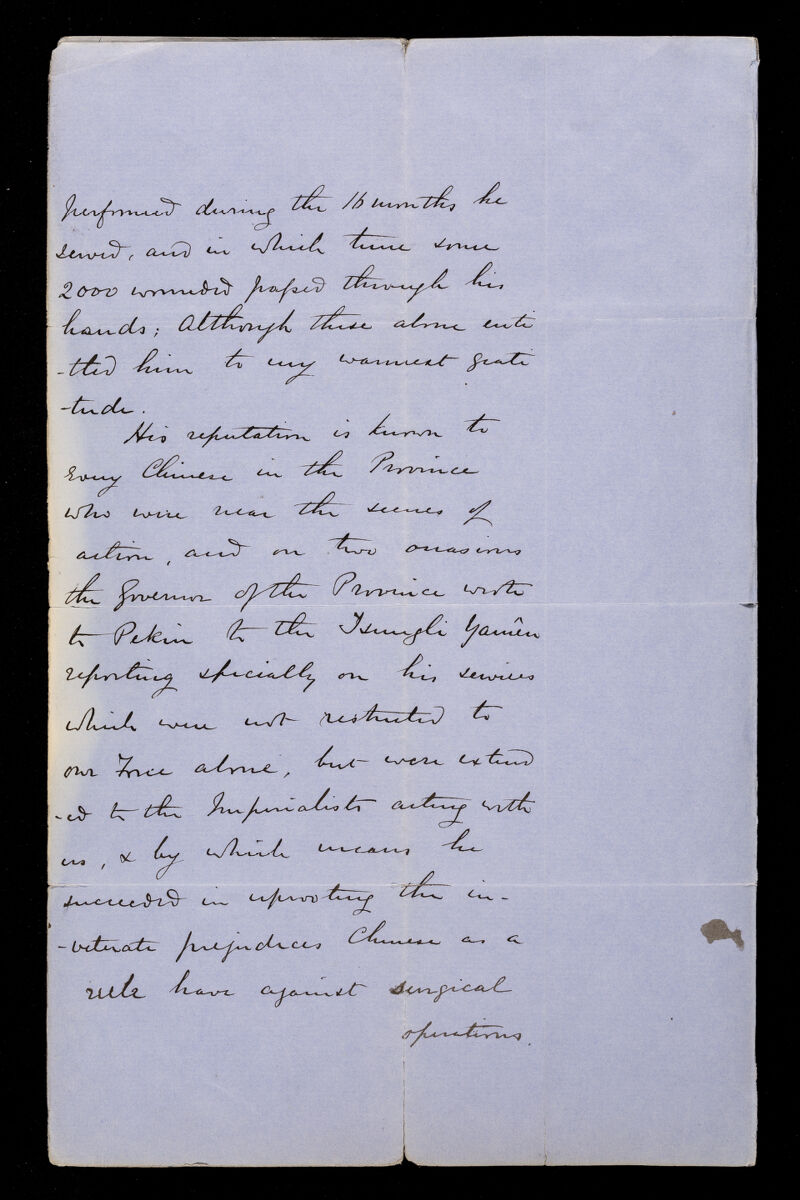 performed during the 16 months he
served, and in which time some
2000 wounded passed through his
hands; Although these alone enti
-tled him to my warmest grati
-tude.
His reputation is known to
every Chinese in the Province
who were near the scenes of
action, and on two occasions
the Governor of the Province wrote
to Pekin to the Tsungli Yamên
reporting specially on his services
which were not restricted to
our Force alone, but were extend
-ed to the Imperialists acting with
us, & by which means he
succeeded in uprooting the in-
-veterate prejudices Chinese as a
rule have against surgical
operations.